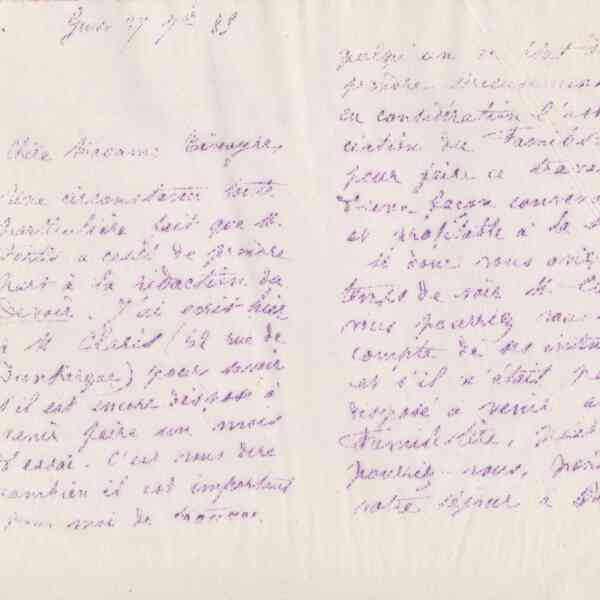 Guise 27 9bre 83
Chère Madame Tisserant,
Une circonstance toute
particulière fait que M.
a cessé de prendre
part à la rédaction du
Devoir. J'ai écrit hier
à M. Claris (52 rue de
Dunkerque) pour savoir
s'il est encore disposé à
venir faire un mois
d'essai. C'est vous dire
combien il est important
pour moi de trouver
quelqu'un
prendre
en considération l'asso
ciation du Familis
pour faire ce trava
d'une façon conven
et profitable à la
Si donc vous avi
temps de voir M. Cl
vous pourrez vous
compte de ses inten
et s'il n'était p
disposé à venir a
Familistère, peut
pourriez-vous, pen
votre séjour à Pa